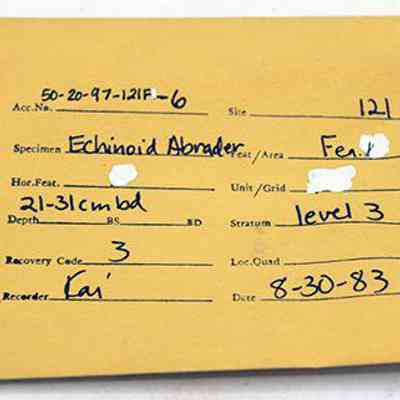 50-20-97-121F-6
Acc.No. Site 121
Specimen Echinoid Abrader Feat/Area Fea.
Hor.Feat. Unit/Grid
21-31cmbd
Depth BS BD Stratum level 3
Recovery Code 3 Loc.Quad
Recorder Kai Date 8-30-83